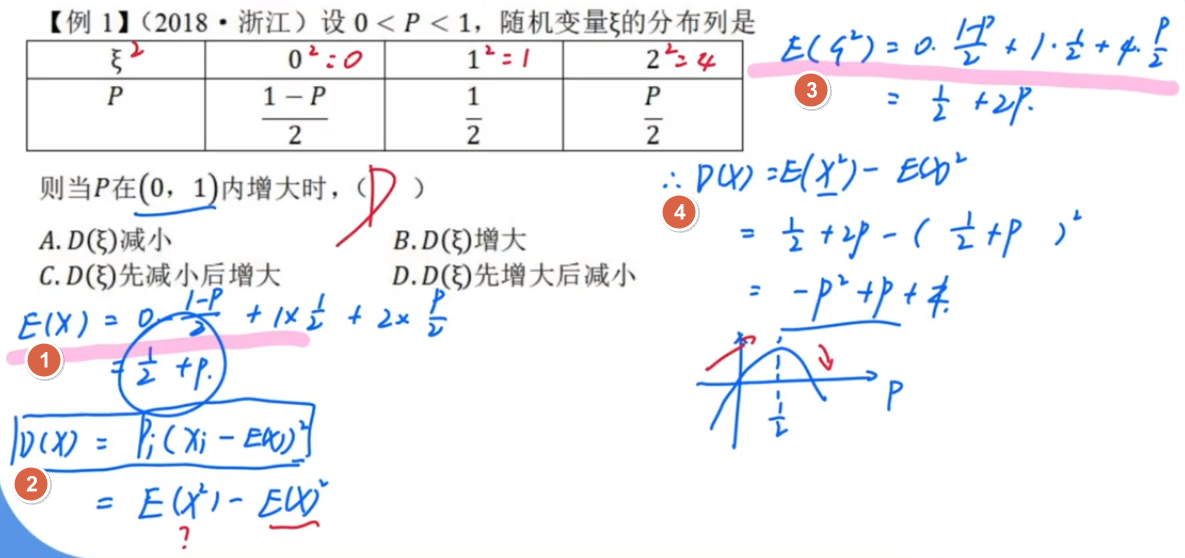 【例 1】（2018·浙江）设 0 < P < 1，随机变量ξ的分布列是
ξ² 0²=0 1²=1 2²=4
P (1−P)/2 1/2 P/2
则当P在(0，1)内增大时，（D）
A. D(ξ)减小 B. D(ξ)增大
C. D(ξ)先减小后增大 D. D(ξ)先增大后减小
E(X) = 0·(1-P)/2 + 1×1/2 + 2×P/2
1
= 1/2 + P.
D(X) = Pi(Xi − E(X))²
2
= E(X²) − E(X)²
?
E(ξ²) = 0·(1-P)/2 + 1·1/2 + 4·P/2
3
= 1/2 + 2P.
∴ D(X) = E(X²) − E(X)²
4
= 1/2 + 2P − (1/2 + P)²
= −P² + P +
P
1/2